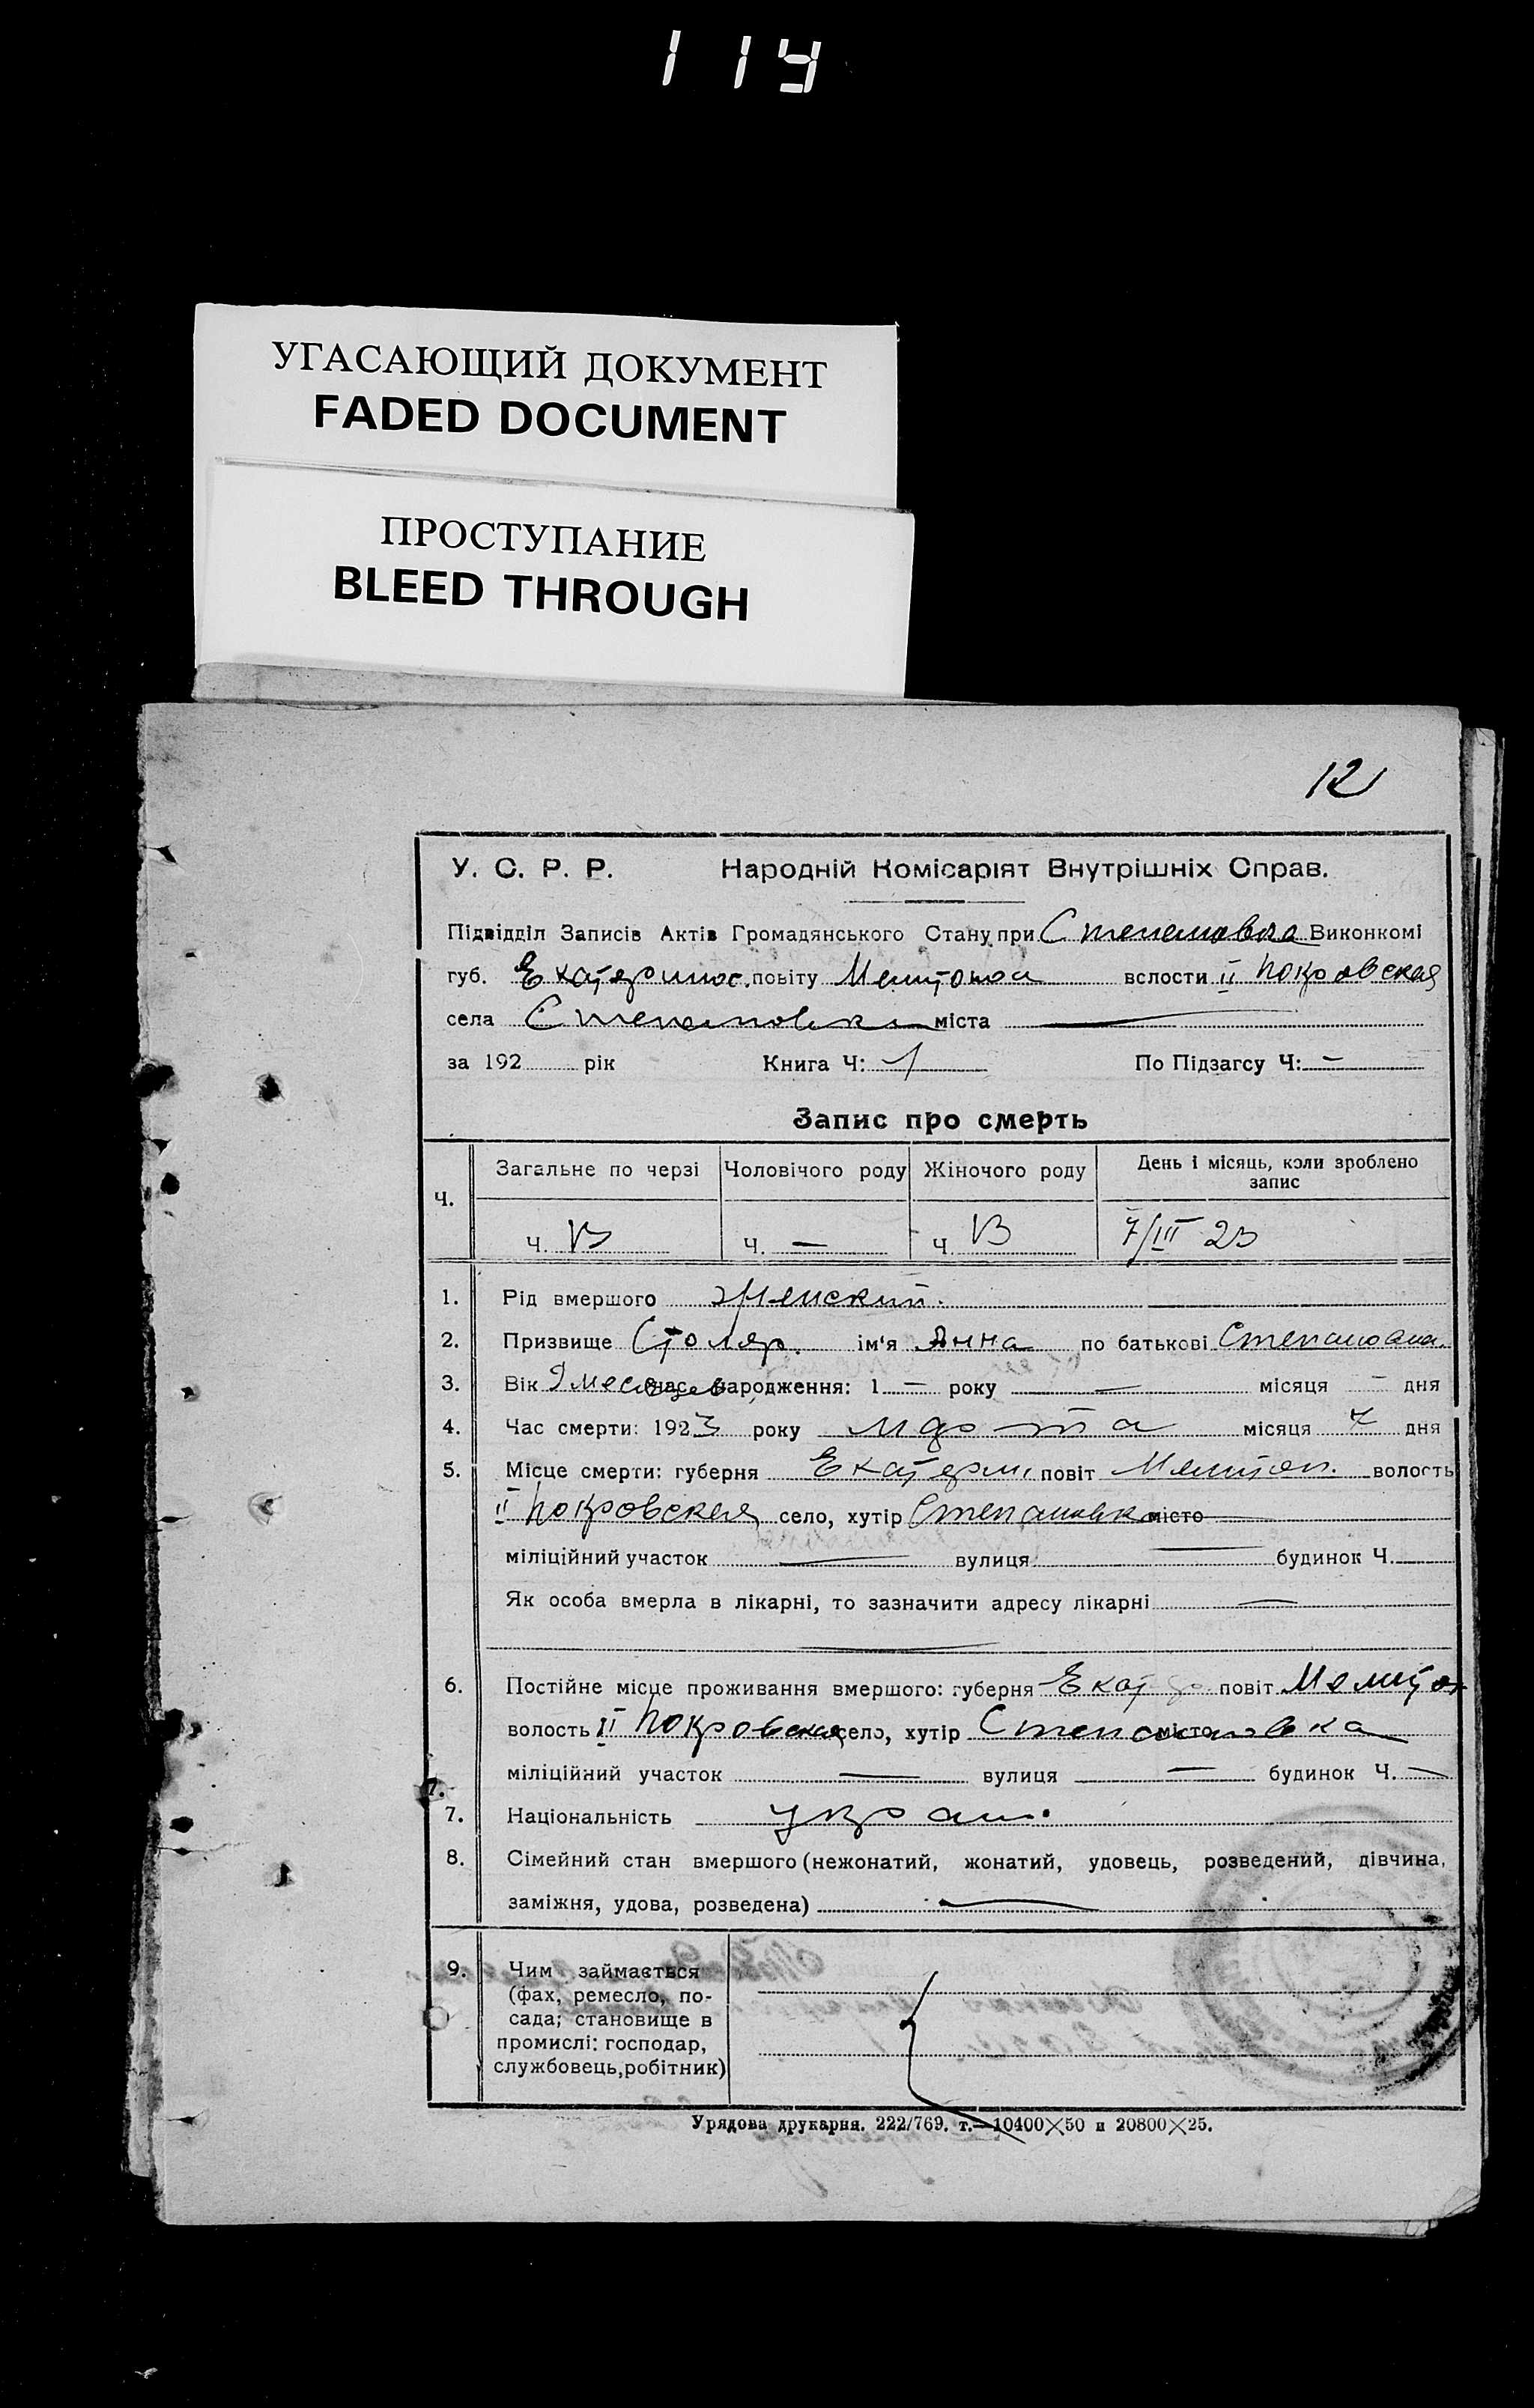 119
УГАСАЮЩИЙ ДОКУМЕНТ
FADED DOCUMENT
ПРОСТУПАНИЕ
BLEED THROUGH
12
У. С. Р. Р. Народній Комісаріят Внутрішніх Справ.
Підвідділ Записів Актів Громадянського Стану при Степановка Виконкомі
губ. Екатеринос. повіту Мелитопол вслости II Покровская
села Степановка міста —
за 192 рік Книга Ч: 1 По Підзагсу Ч: —
Запис про смерть
Ч. Загальне по черзі Чоловічого роду Жіночого роду День і місяць, коли зроблено запис
ч. 13 ч. — ч 13 7/III 23
1. Рід вмершого женский.
2. Призвище Столяр. ім'я Анна по батькові Степановна.
3. Вік 9 месяцев час народження: 1 — року — місяця — дня
4. Час смерти: 1923 року марта місяця 7 дня
5. Місце смерти: губерня Екатерин, повіт Мелитоп. волость
II Покровская село, хутір Степановка місто —
міліційний участок — вулиця — будинок Ч.
Як особа вмерла в лікарні, то зазначити адресу лікарні —
—
6. Постійне місце проживання вмершого: губерня Екат повіт Мелитоп
волость II Покровская село, хутір Степановка місто
міліційний участок — вулиця — будинок Ч. —
7.
7. Національність украин.
8. Сімейний стан вмершого (нежонатий, жонатий, удовець, розведений, дівчина,
заміжня, удова, розведена) —
9. Чим займається
(фах, ремесло, по-
сада; становище в
промислі: господар,
службовець, робітник)
Урядова друкарня. 222/769. т.—10400×50 и 20800×25.